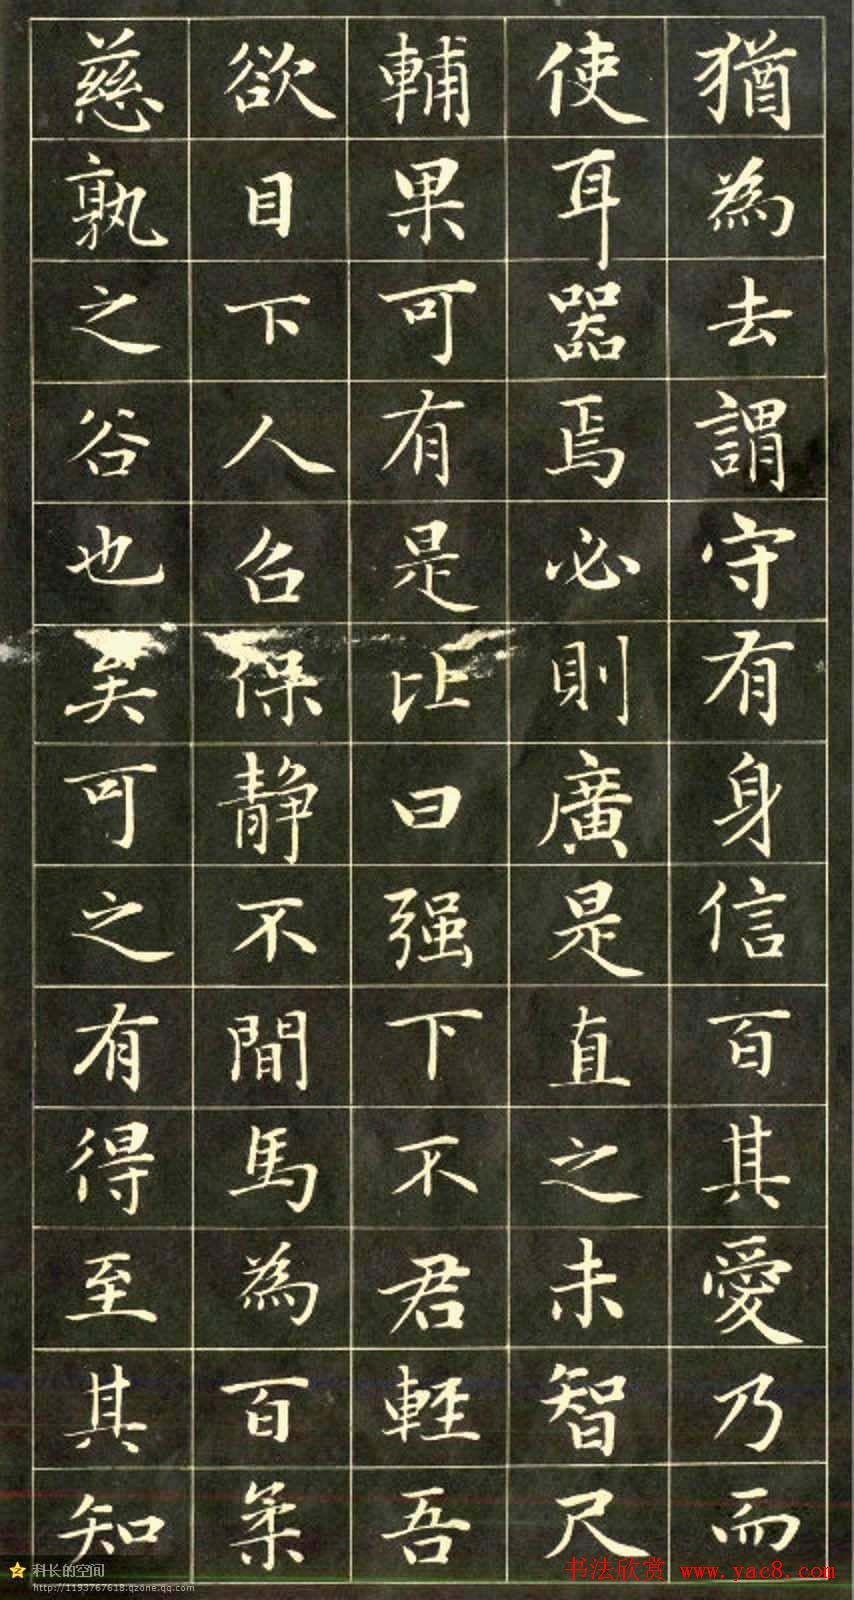 猶為去謂守有身信百其愛乃而
使耳器焉必則廣是直之未智尺
輔果可有是比曰强下不君輕吾
欲目下人台保静不間馬為百柔
慈孰之谷也矣可之有得至其知
科长的空间
http://1193767618.qzone.qq.com
书法欣赏 www.yac8.com